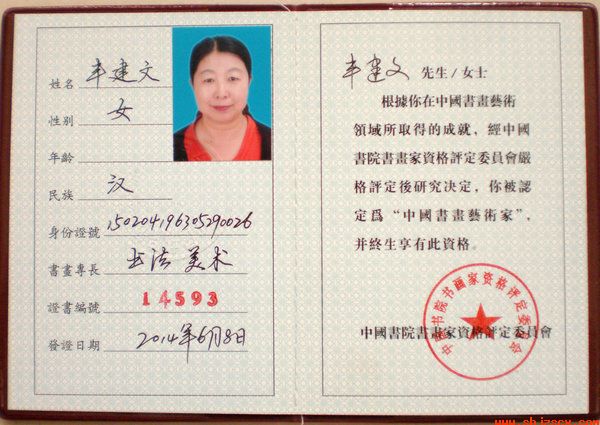 姓名 丰建文
性别 女
年龄
民族 汉
身份證號 150204196305290026
書畫專長 书法 美术
證書編號 14593
發證日期 2014年6月8日
丰建文 先生/女士
根據你在中國書畫藝術
領域所取得的成就，經中國
書院書畫家資格評定委員會嚴
格評定後研究决定，你被認
定爲“中國書畫藝術家”，
并終生享有此資格。
中國書院書畫家資格評定委員會
中国书院书画家资格评定委员会